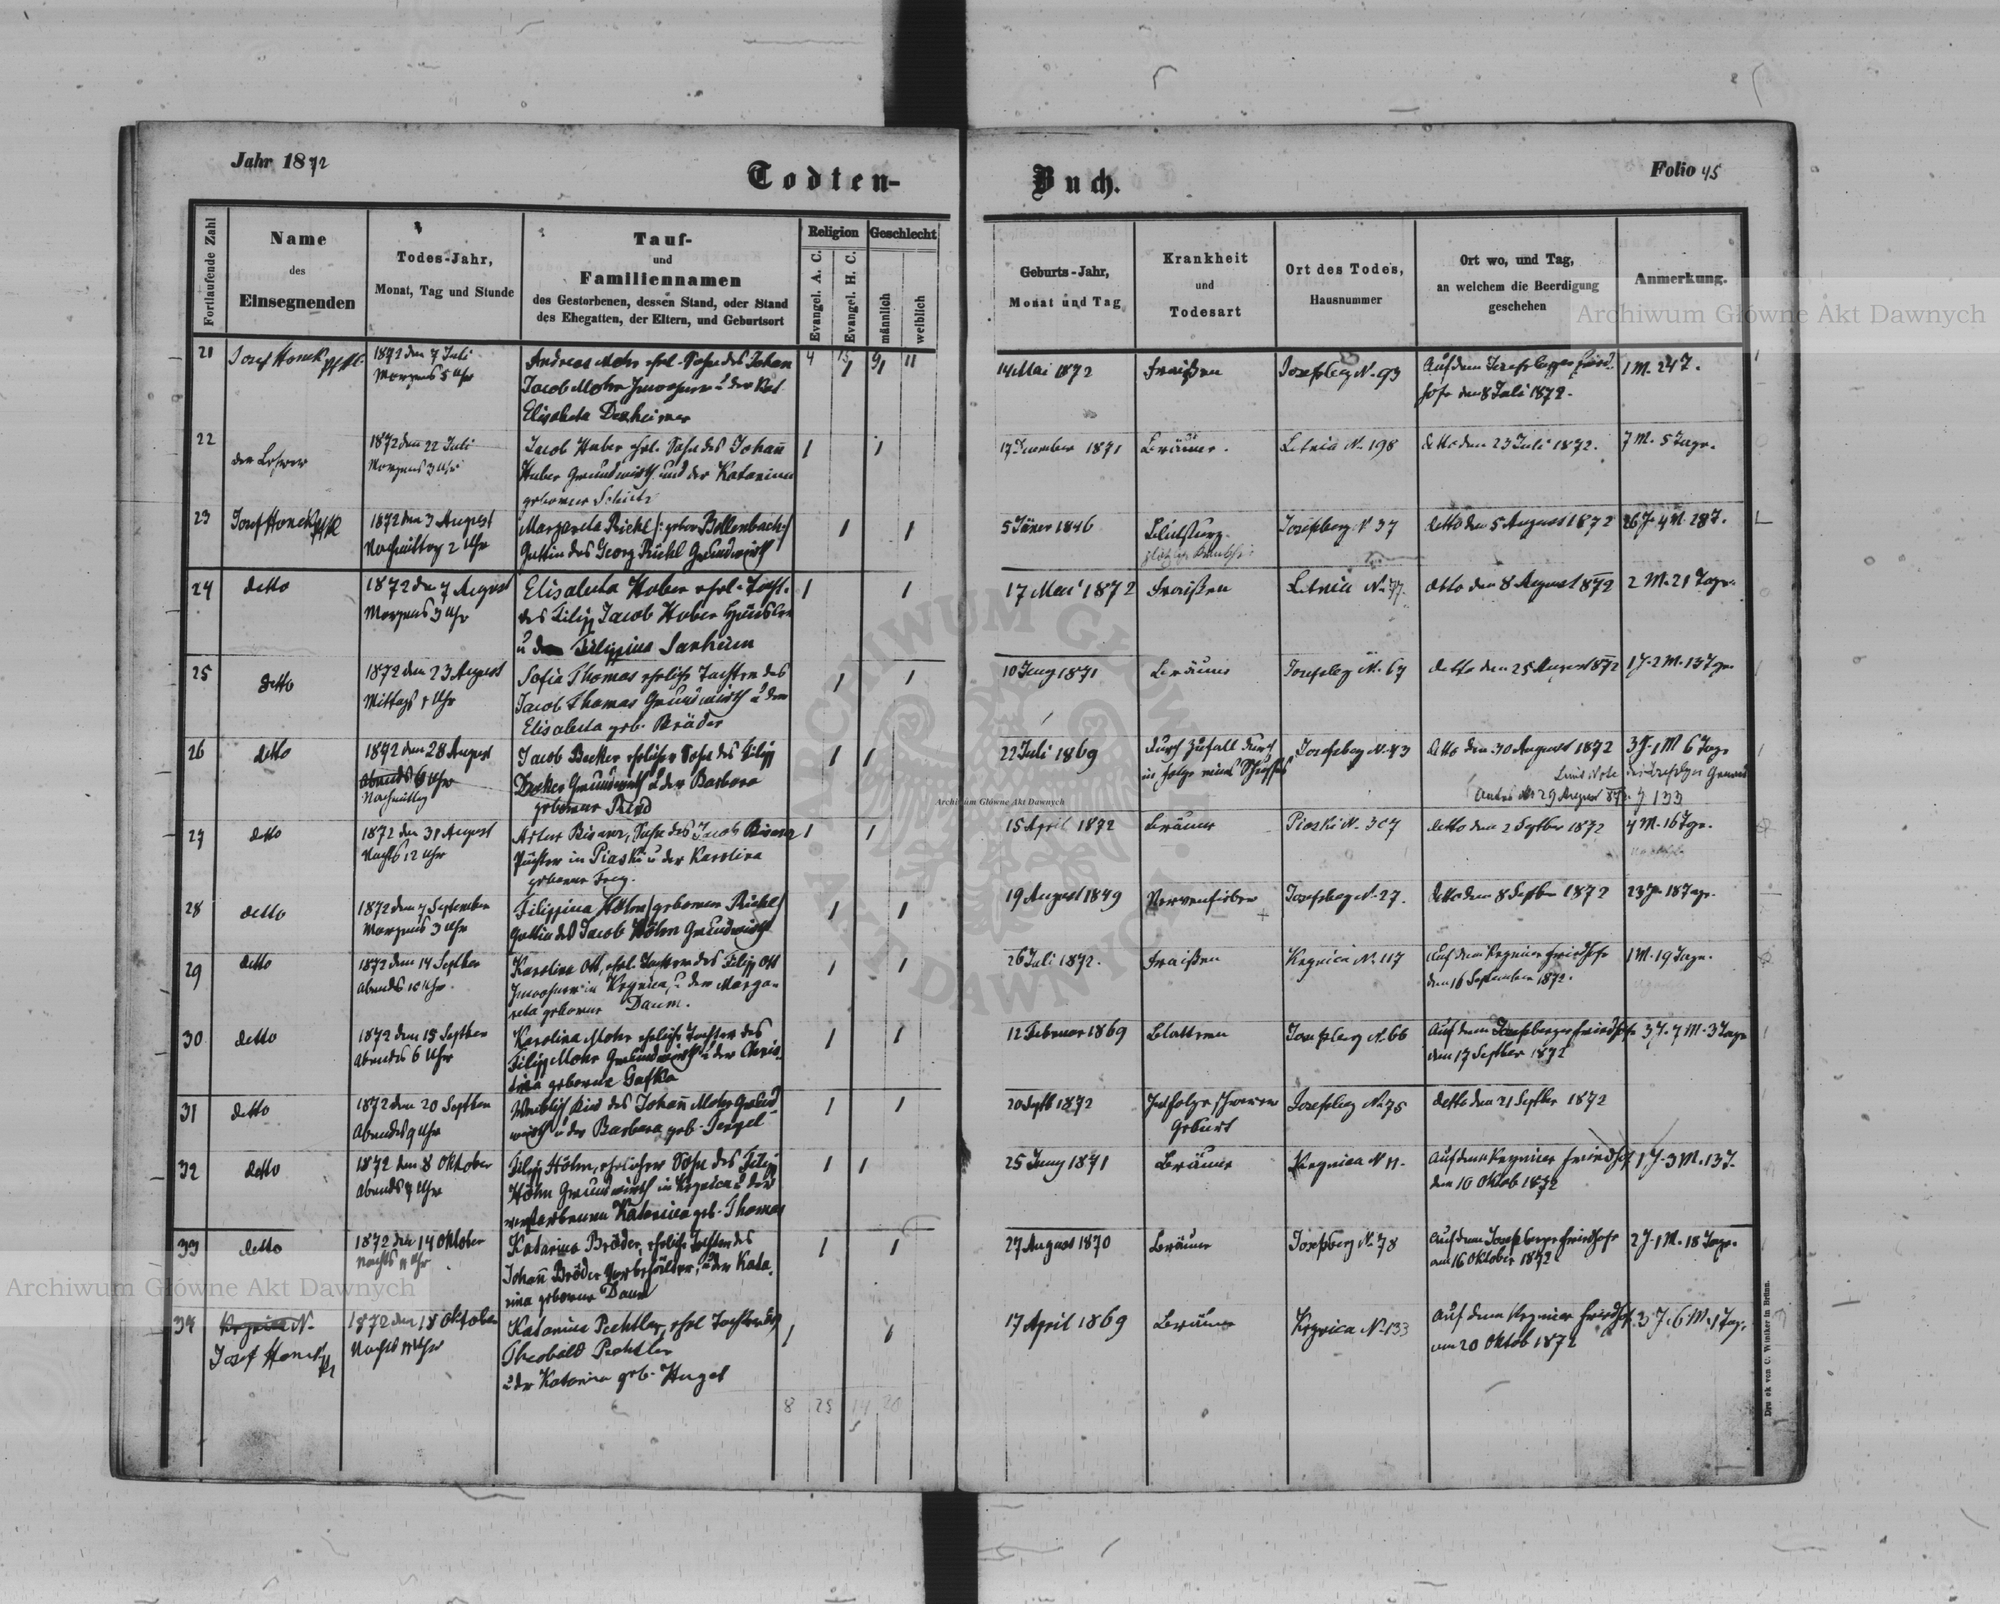 Jahr 1872
Todten-
Buch.
Folio 45
Fortlaufende Zahl
Name
des
Einsegnenden
Todes-Jahr,
Monat, Tag und Stunde
Tauf-
und
Familiennamen
des Gestorbenen, dessen Stand, oder Stand
des Ehegatten, der Eltern, und Geburtsort
Religion
Evangel. A. C.
Evangel. H. C.
Geschlecht
männlich
weiblich
Geburts-Jahr,
Monat und Tag
Krankheit
und
Todesart
Ort des Todes,
Hausnummer
Ort wo, und Tag,
an welchem die Beerdigung
geschehen
Anmerkung.
21
Josef Honek
1872 den 7 Juli
Morgens 5 Uhr
Andreas Mohr ehel. Sohn des Johan
Jacob Mohr Inwohner u der
Elisabeta
14 Mai 1872
Fraißen
Josefsberg N. 93
Auf dem Josefsberger Fried
hofe den 8 Juli 1872.
1 M. 24 T.
22
der Lehrer
1872 den 22 Juli
Morgens 3 Uhr
Jacob Huber ehel. Sohn des Johañ
Huber Grundwirth und der Katarina
geborner Schütz
17 Dcember 1871
Bräune.
Letnia N. 198
detto den 23 Juli 1872.
7 M. 5 Tage.
23
Josef Honek
1872 den 3 August
Nachmittag 2 Uhr
Margareta Rickl /: geborn Bollenbach :/
Gattin des Georg Rickl Grundwirth
5 Jäner 1846
Blutsturz
Josefsberg N 37
detto den 5 August 1872
26 J. 4 M. 28 T.
24
detto
1872 den 7 August
Morgens 3 Uhr
Elisabeta Huber ehel. Tocht.
des Filipp Jacob Huber Häusler
u der Filippina Sarheim
17 Mai 1872
Fraißen
Letnia N. 77.
detto den 8 August 1872
2 M. 21 Tage.
25
detto
1872 den 23 August
Mittags 1 Uhr
Sofia Thomas ehelich Tochter des
Jacob Thomas Grundwirth u der
Elisabeta geb. Bräder
10 Juny 1871
Bräune
Josefsberg N. 67
detto den 25 August 1872
1 J. 2 M. 13 Tge.
26
detto
1872 den 28 August
Abends 6 Uhr
Nachmittag
Jacob Becker ehelicher Sohn des Filipp
Becker Grundwirth u der Barbara
geborner
22 Juli 1869
durch Zufall durch
in folge eines Schusses
Josefsberg N. 43
detto den 30 August 1872
3 J. 1 M 6 Tage
29 August 872. Z 133
27
detto
1872 den 31 August
Nachts 12 Uhr
Artur Bisanz, Sohn des Jacob Bisanz
Pächter in Piaski u der Karolina
geborner Frey.
15 April 1872
Bräune
Piaski N. 307
detto den 2 Septber 1872
4 M. 16 Tge.
28
detto
1872 den 7 September
Morgens 3 Uhr
Filippina Höhn / geborner Rickl /
Gattin des Jacob Höhn Grundwirth
19 August 1849
Nervenfieber
Josefsberg N. 27.
detto den 8 Septbr 1872
23 J. 18 Tage.
29
detto
1872 den 14 Septber
Abends 10 Uhr.
Karolina Ott, ehel. Tochter des Filipp Ott
Inwohner in Krynica, u der Marga-
reta geborner Daum.
26 Juli 1872.
Fraißen
Krynica N. 117
Auf dem Krynicer Friedhofe
den 16 September 1872.
1 M. 19 Tage.
30
detto
1872 den 15 Septber
Abends 6 Uhr
Karolina Mohr ehelich Tochter des
Filipp Mohr Grundwirth u der Chris-
tina geborner Gafka
12 Februar 1869
Blattern
Josefsberg N. 66
Auf dem Josefsberger Friedhofe
den 17 Septber 1872
3 J. 7 M. 3 Tage
31
detto
1872 den 20 Septber
Abends 9 Uhr
Weiblich Kind des Johañ Mohr Grund-
wirth u der Barbara geb.
20 Septb 1872
Infolge schwerer
Geburt
Josefsberg N. 75
detto den 21 Septber 1872
32
detto
1872 den 8 Oktober
Abends 7 Uhr
Filipp Höhn, ehelicher Sohn des Filipp
Höhn Grundwirth in Krynica u der
verstorbenen Katarina geb. Thomas
25 Juny 1871
Bräune
Krynica N 11.
Auf dem Krynicer Friedhof
den 10 Oktob 1872
1 J. 3 M. 13 T.
33
detto
1872 den 14 Oktober
Nachts 11 Uhr
Katarina Bröder, ehelich Tochter des
Johañ Bröder u der Kata-
rina geborner Daum
27 August 1870
Bräune
Josefsberg N. 78
Auf dem Josefsberger Friedhofe
am 16 Oktober 1872
2 J. 1 M. 18 Tage.
34
Krynica N.
Josef Honek
1872 den 18 Oktober
Nachts 11 Uhr
Katarina Pechtler, ehel Tochter des
Theobald Pechtler
u der Katarina geb. Hugel
17 April 1869
Bräune
Krynica N. 133
Auf dem Krynicer Friedhof.
am 20 Oktob 1872
3 J. 6 M. 1 Tag.
8 25 14 20
Druck von C. Winiker in Brünn.
Archiwum Główne Akt Dawnych
Archiwum Główne Akt Dawnych
Archiwum Główne Akt Dawnych
ARCHIWUM GŁÓWNE
AKT DAWNYCH